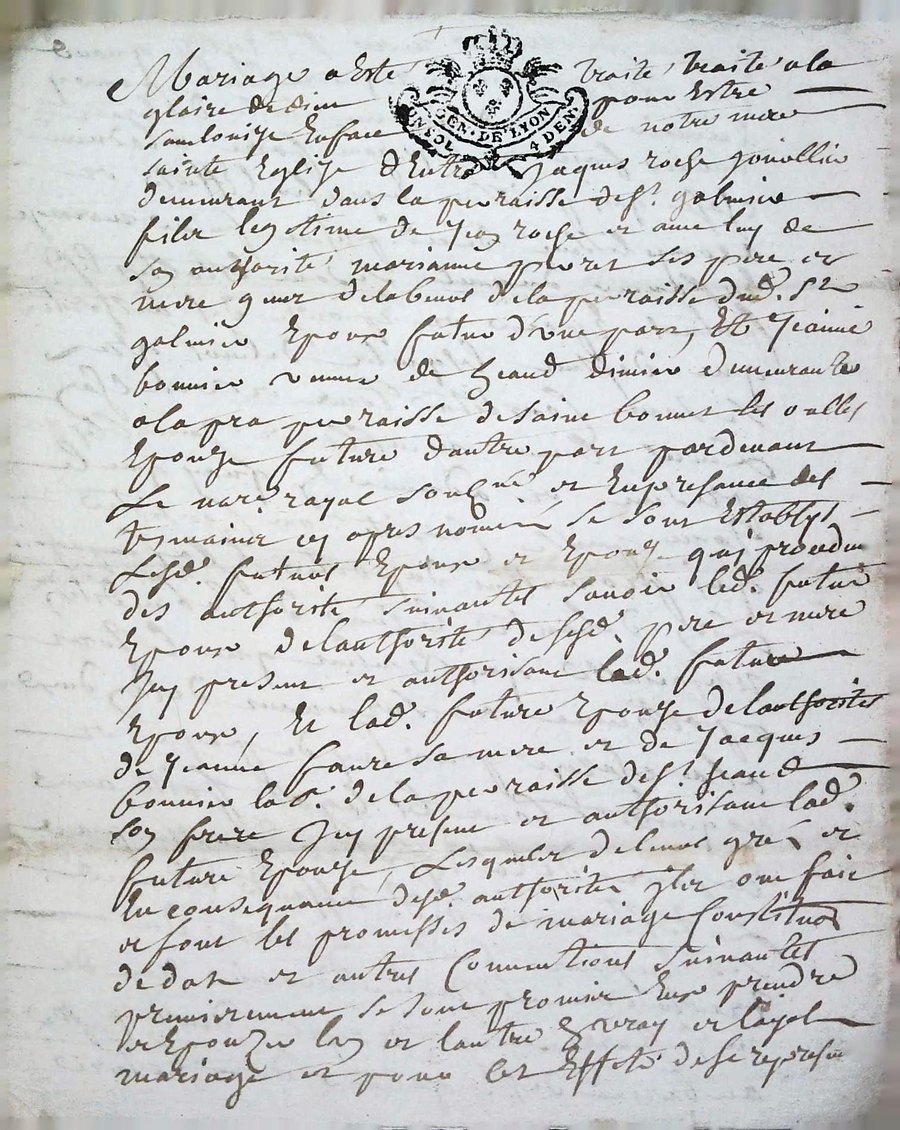 Mariage a este traité traité a la
gloire de dieu pour estre
sanlonize en face de notre mere
GEN. DE LYON
UN SOL 4 DEN
sainte Eglize d'Entre Jaques roche
demeurant dans la parroisse de St. galmier
filz legitime de Jean roche et avec luy de
son authorité marianne ses pere et
mere de la parroisse dud. St
galmier Epoux futur d'une part, Et Jeanne
bonnier veuve de Dimier demeurante
a la pra parroisse de saint bonnet les oulles
Epouze future d'autre part pardevant
Le nore. royal soubné. et En presance des
tesmoins cy apres nommés se sont Establys
Lesd. futurs Epoux et Epouze qui procedent
des authorité suivantes savoir led. futur
Epoux de l'authorité de sesd. pere et mere
Icy present et authorisant led. futur
Epoux, Et lad. future Epouze de lauthorités
de Jeanne faure sa mere et de Jacques
bonnier de la parroisse de St
son frere Icy present et authorisant lad.
future Epouze, Lesquels de leurs grés et
En consequance desd. authorités ilz ont fait
et font les promesses de mariage Constitution
de dot et autres Conventions suivantes
premierement se sont promier Eux prendre
et Epouzer lun et lautre En vray et loyal
mariage et pour les Effets de se represen